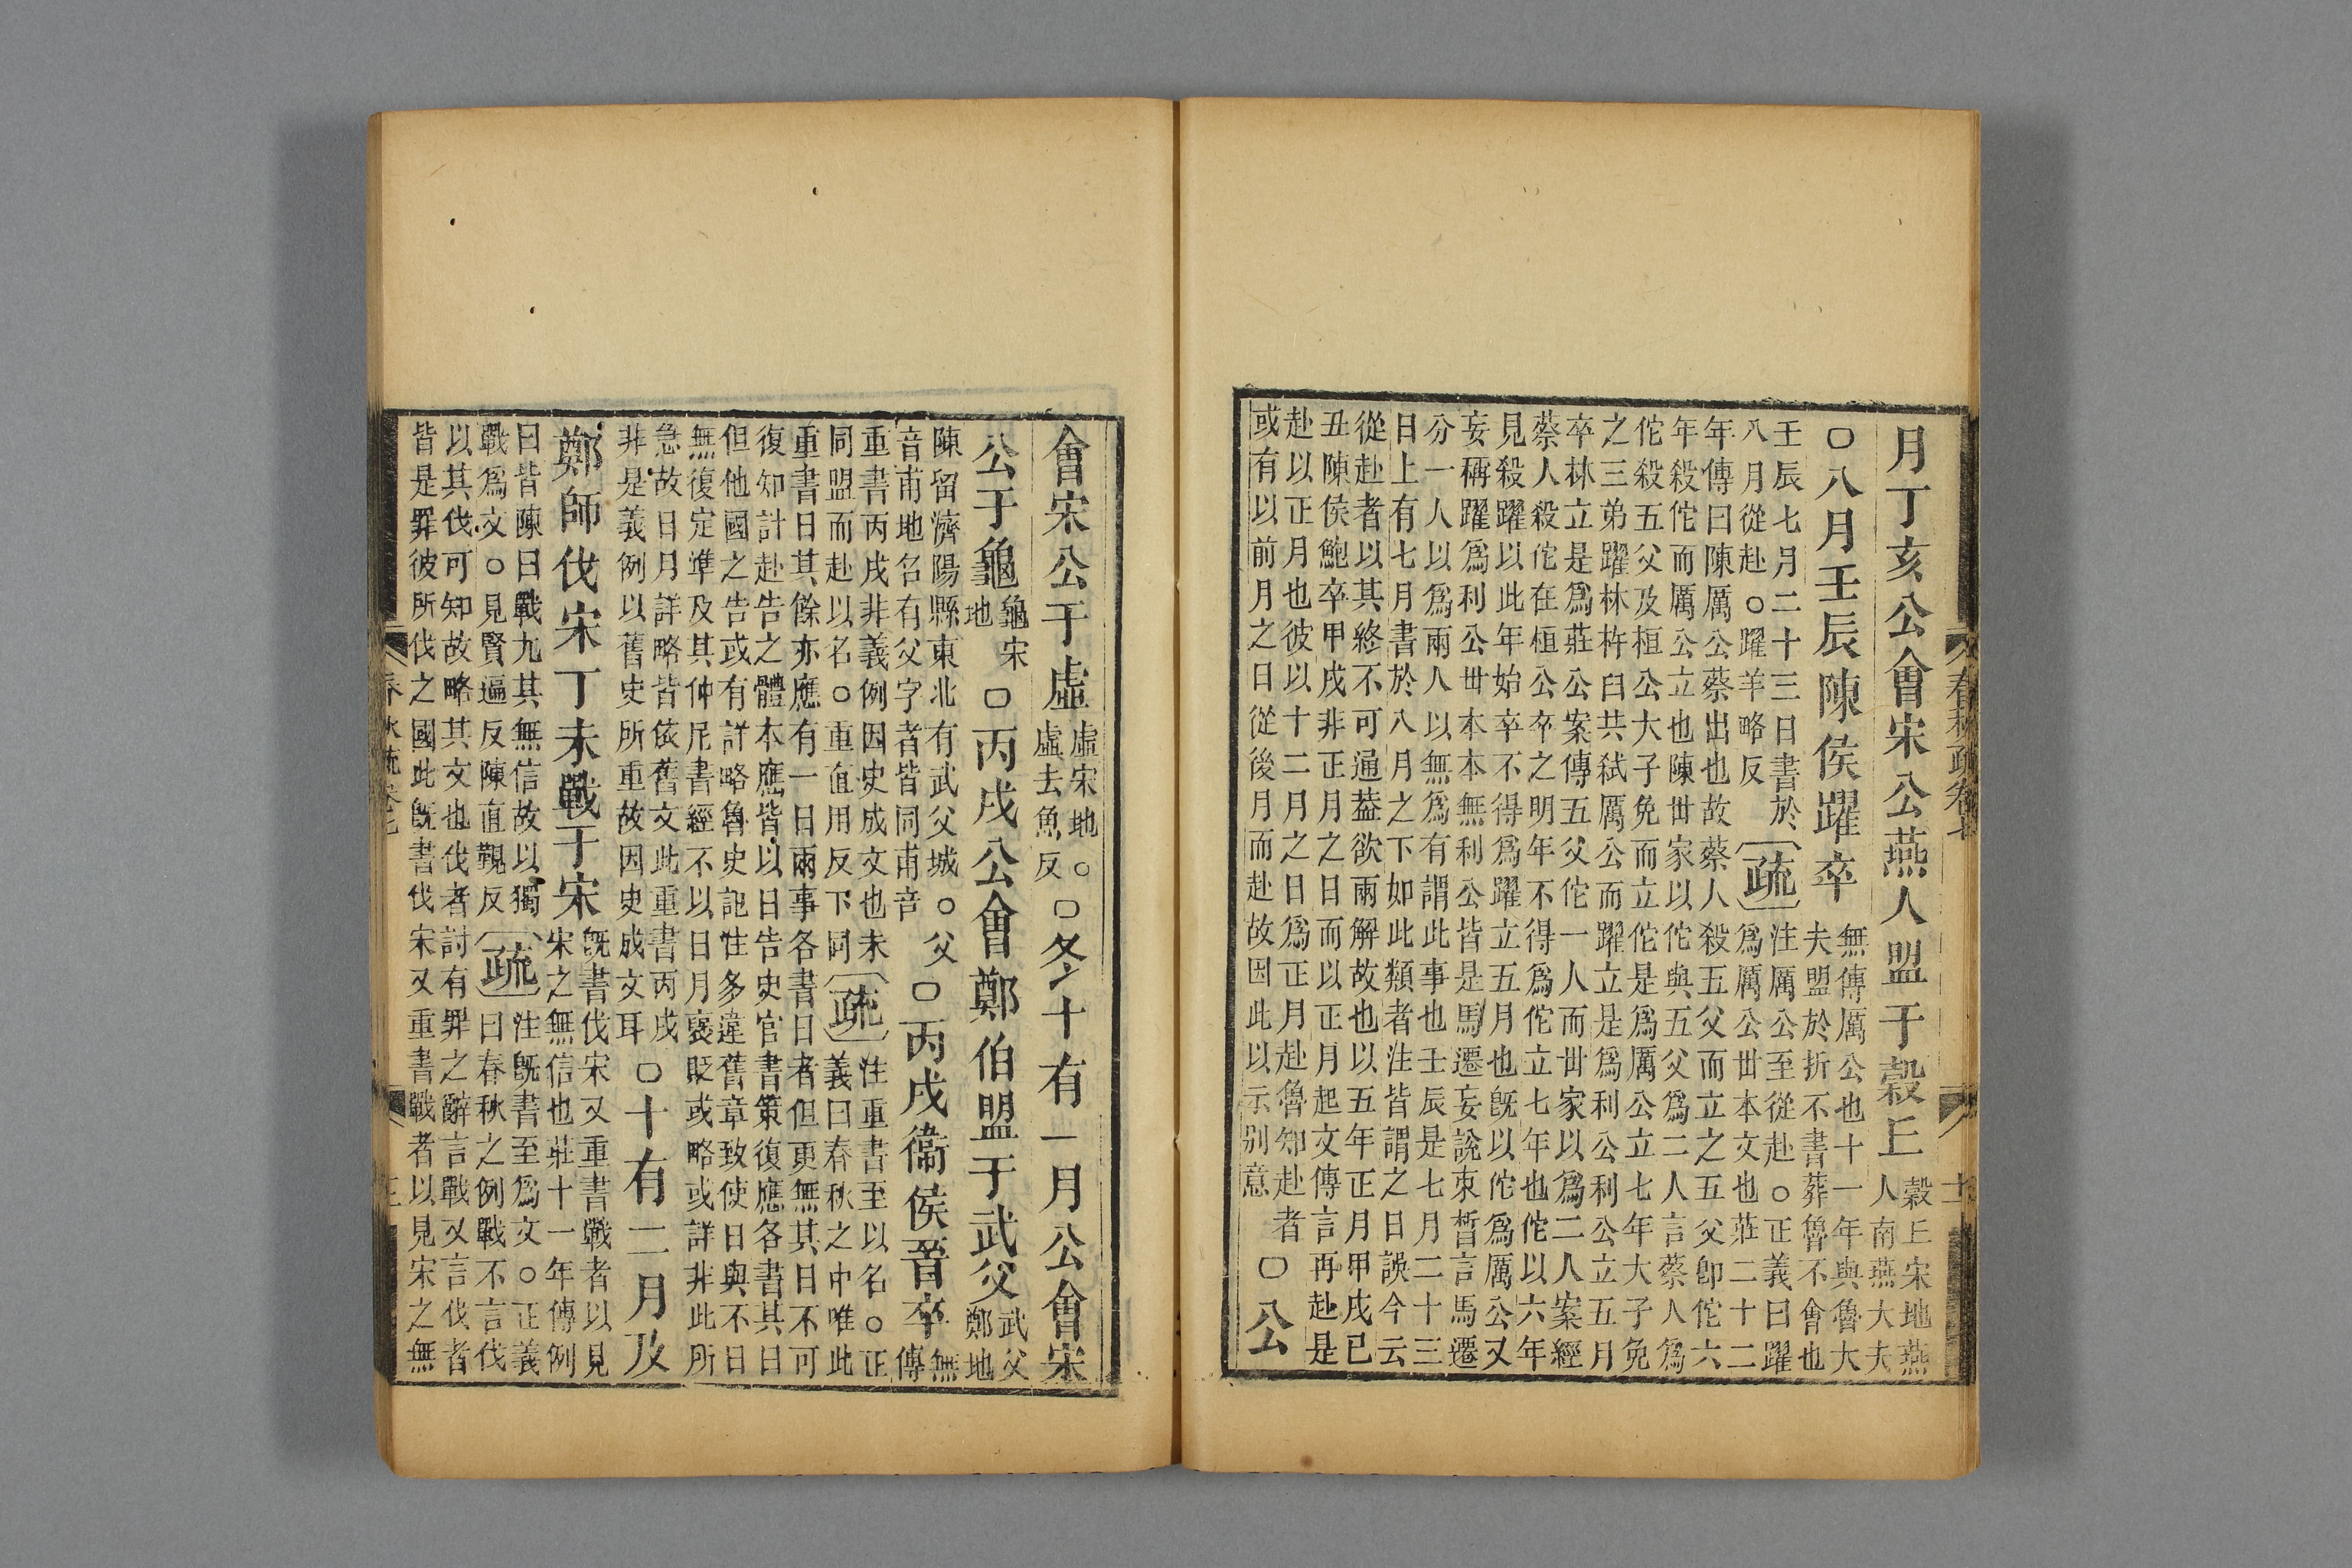 春秋疏卷七
月丁亥公會宋公燕人盟于穀丘
穀丘宋地燕
人南燕大夫
〇八月壬辰陳侯躍卒
無傳厲公也十一年與魯大
夫盟於折不書葬魯不會也
壬辰七月二十三日書於
八月從赴。躍羊略反
疏
注厲公至從赴。正義曰躍
爲厲公世本文也莊二十二
年傳曰陳厲公蔡出也故蔡人殺五父而立之五父卽佗六
年殺佗而厲公立也陳世家以佗與五父爲二人言蔡人爲
佗殺五父及桓公大子免而立佗是爲厲公立七年大子免
之三弟躍林杵臼共弑厲公而躍立是爲利公利公立五月
卒林立是爲莊公案傳五父佗一人而世家以爲二人案經
蔡人殺佗在桓公卒之明年不得爲佗立七年也佗以六年
見殺躍以此年始卒不得爲躍立五月也旣以佗爲厲公又
妄稱躍爲利公世本本無利公皆是馬遷妄說束晳言馬遷
分一人以爲兩人以無爲有謂此事也壬辰是七月二十三
日上有七月書於八月之下如此類者注皆謂之日誤今云
從赴者以其終不可通葢欲兩解故也以五年正月甲戌已
丑陳侯鮑卒甲戌非正月之日而以正月起文傳言再赴是
赴以正月也彼以十二月之日爲正月赴魯知赴者
或有以前月之日從後月而赴故因此以示別意
〇公
會宋公于虛
虛宋地。
虛去魚反
〇冬十有一月公會宋
公于龜
龜宋
地
〇丙戌公會鄭伯盟于武父
武父
鄭地
陳留濟陽縣東北有武父城。父
音甫地名有父字者皆同甫音
〇丙戌衞侯晉卒
無
傳
重書丙戌非義例因史成文也未
同盟而赴以名。重直用反下同
疏
注重書至以名。正
義曰春秋之中唯此
重書日其餘亦應有一日兩事各書日者但更無其日不可
復知計赴告之體本應皆以日告史官書策復應各書其日
但他國之告或有詳略魯史記注多違舊章致使日與不日
無復定準及其仲尼書經不以日月襃貶或略或詳非此所
急故日月詳略皆依舊文此重書丙戌
非是義例以舊史所重故因史成文耳
〇十有二月及
鄭師伐宋丁未戰于宋
旣書伐宋又重書戰者以見
宋之無信也莊十一年傳例
曰皆陳曰戰九其無信故以獨
戰爲文。見賢遍反陳直覲反
疏
注旣書至爲文。正義
曰春秋之例戰不言伐
以其伐可知故略其文也伐者討有罪之辭言戰又言伐者
皆是罪彼所伐之國此旣書伐宋又重書戰者以見宋之無